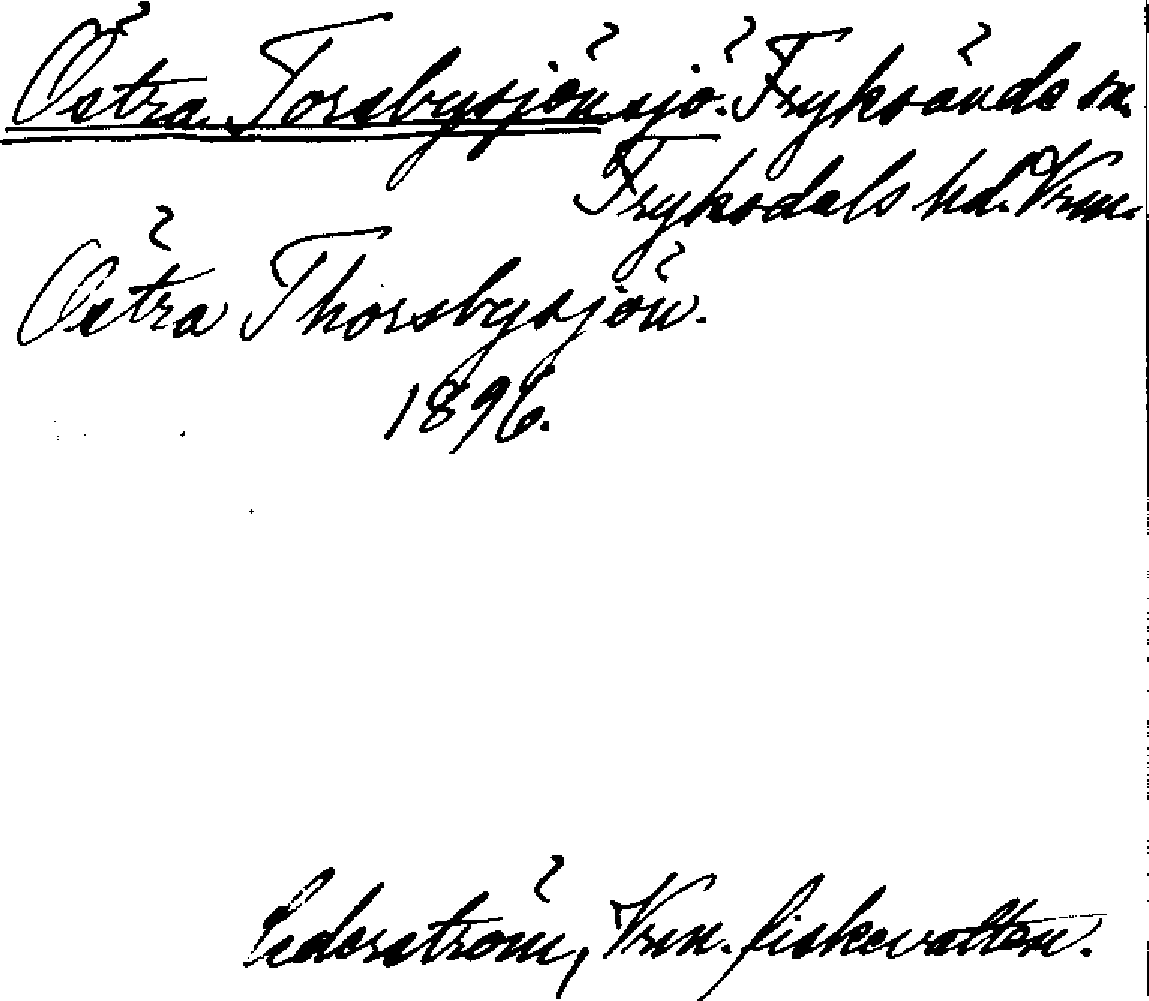 Östra Torsbysjön sjö. Fryksände sn.
Fryksdals hd. Vrm.
Östra Thorsbysjön.
1896.
Cederström, Vrm. fiskevatten.